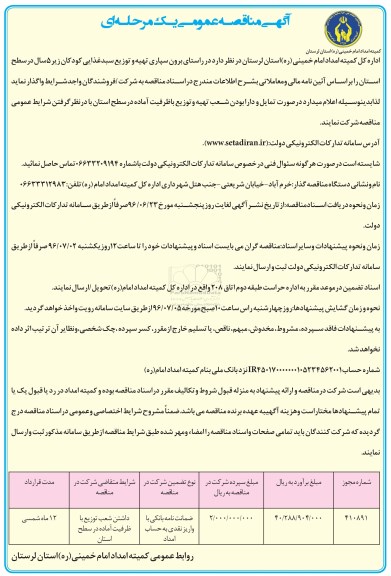 آگهی مناقصه عمومی یک مرحله‌ای
کمیته امداد امام خمینی (ره) استان لرستان
اداره کل کمیته امداد امام خمینی (ره) استان لرستان در نظر دارد در راستای برون سپاری تهیه و توزیع سبد غذایی کودکان زیر ۵ سال در سطح
استان را بر اساس آئین نامه مالی و معاملاتی بشرح اطلاعات مندرج در اسناد مناقصه به شرکت / فروشندگان واجد شرایط واگذار نماید
لذا بدینوسیله اعلام میدارد در صورت تمایل و دارا بودن شعب تهیه و توزیع با ظرفیت آماده در سطح استان با در نظر گرفتن شرایط عمومی
مناقصه شرکت نمایند.
آدرس سامانه تدارکات الکترونیکی دولت: (www.setadiran.ir)
شایسته است در صورت هر گونه سئوال فنی در خصوص سامانه تدارکات الکترونیکی دولت با شماره ۰۶۶۳۳۲۰۹۱۹۴ تماس حاصل نمائید.
نام و نشانی دستگاه مناقصه گذار: خرم آباد - خیابان شریعتی - جنب هتل شهرداری اداره کل کمیته امداد امام (ره) تلفن: ۰۶۶۳۳۳۱۲۹۸۳
زمان و نحوه دریافت اسناد مناقصه: از تاریخ نشر آگهی لغایت روز پنجشنبه مورخ ۹۶/۰۶/۲۳ صرفاً از طریق سامانه تدارکات الکترونیکی
دولت.
زمان و نحوه پیشنهادات و سایر اسناد: مناقصه گران می بایست اسناد و پیشنهادات خود را تا ساعت ۱۲ روز یکشنبه ۹۶/۰۷/۰۲ صرفاً از طریق
سامانه تدارکات الکترونیکی دولت ثبت و ارسال نمایند.
اسناد تضمین در موعد مقرر به اداره حراست طبقه دوم اتاق ۲۰۸ واقع در اداره کل کمیته امداد امام (ره) تحویل / ارسال نمایند.
نحوه و زمان گشایش پیشنهادها: روز چهارشنبه راس ساعت ۱۰ صبح مورخه ۹۶/۰۷/۰۵ از طریق سایت سامانه رویت و اخذ خواهد گردید.
به پیشنهادات فاقد سپرده، مشروط، مخدوش، مبهم، ناقص، یا تسلیم خارج از مقرر، کسر سپرده، چک شخصی، ونظایر آن ترتیب اثر داده
نخواهد شد.
شماره حساب: نزد بانک ملی بنام کمیته امداد امام (ره)
بدیهی است شرکت در مناقصه و ارائه پیشنهاد به منزله قبول شروط و تکالیف مقرر در اسناد مناقصه بوده و کمیته امداد در رد یا قبول یک یا
تمام پیشنهادها مختار است وهزینه آگهی به عهده برنده مناقصه می باشد. ضمناً مشروح شرایط اختصاصی و عمومی در اسناد مناقصه درج
گردیده که شرکت کنندگان باید تمامی صفحات واسناد مناقصه را امضاء و مهر شده طبق شرایط مناقصه از طریق سامانه مذکور ثبت و ارسال
نمایند.
شماره مجوز مبلغ برآورد به ریال مبلغ سپرده شرکت در مناقصه به ریال نوع تضمین شرکت در مناقصه شرایط متقاضی شرکت در مناقصه مدت قرارداد
۴۱۰۸۹۱ ۴۰/۲۸۸/۹۰۴/۰۰۰ ۲/۰۰۰/۰۰۰/۰۰۰ ضمانت نامه بانکی یا واریز نقدی به حساب امداد داشتن شعب توزیع با ظرفیت آماده در سطح استان ۱۲ ماه شمسی
روابط عمومی کمیته امداد امام خمینی (ره) استان لرستان